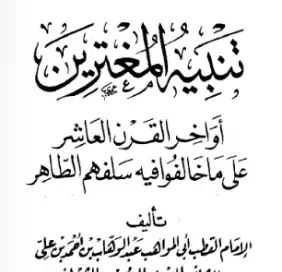 تنبيه المغترين
أواخر القرن العاشر
على ما خالفوا فيه سلفهم الطاهر
تأليف
الإمام القطب أبي المواهب عبد الوهاب بن أحمد بن علي